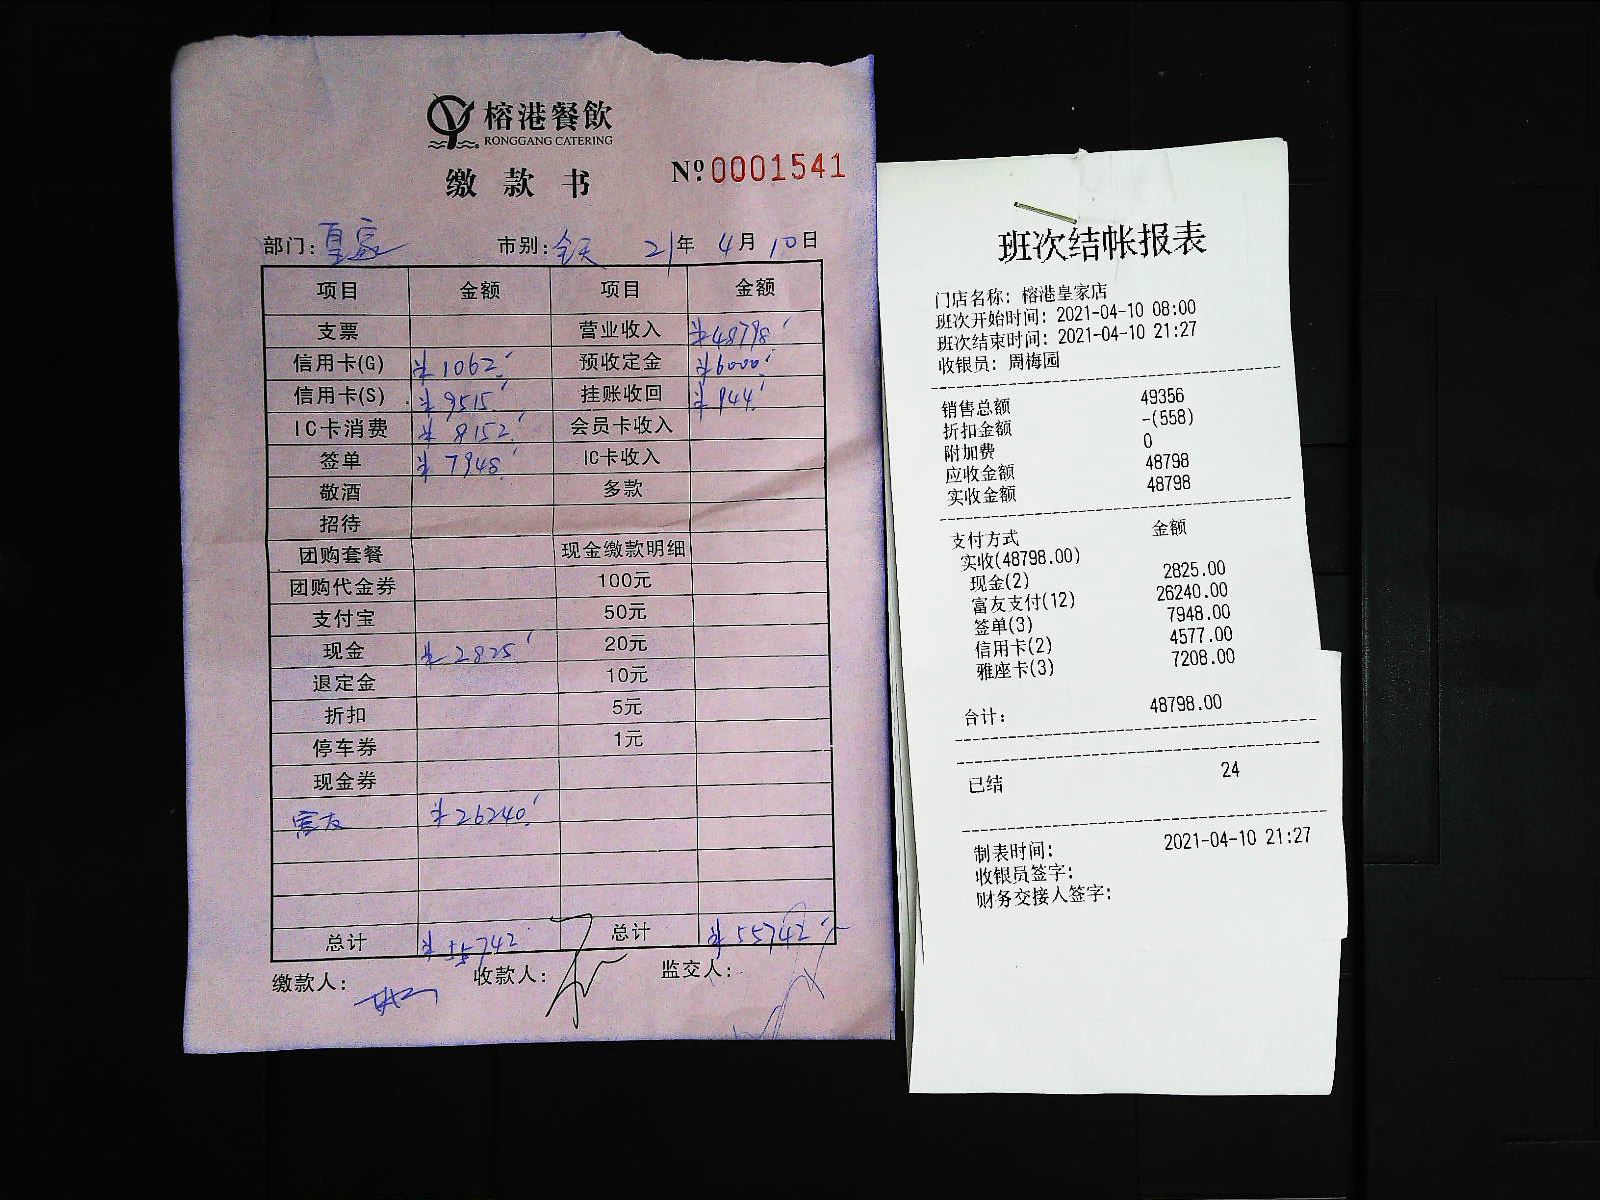 榕港餐飲
RONGGANG CATERING
缴款书
Nº 0001541
部门: 皇家 市别: 全天 21年 4月 10日
项目 金额 项目 金额
支票 营业收入 ¥48798
信用卡(G) ¥1062 预收定金 ¥6000
信用卡(S) ¥9515 挂账收回 ¥944
IC卡消费 ¥8152 会员卡收入
签单 ¥7948 IC卡收入
敬酒 多款
招待
团购套餐 现金缴款明细
团购代金券 100元
支付宝 50元
现金 ¥2825 20元
退定金 10元
折扣 5元
停车券 1元
现金券
富友 ¥26240
总计 ¥55742 总计 ¥55742
缴款人: 收款人: 监交人:
班次结帐报表
门店名称: 榕港皇家店
班次开始时间: 2021-04-10 08:00
班次结束时间: 2021-04-10 21:27
收银员: 周梅园
销售总额 49356
折扣金额 -(558)
附加费 0
应收金额 48798
实收金额 48798
支付方式 金额
实收(48798.00)
现金(2) 2825.00
富友支付(12) 26240.00
签单(3) 7948.00
信用卡(2) 4577.00
雅座卡(3) 7208.00
合计: 48798.00
已结 24
制表时间: 2021-04-10 21:27
收银员签字:
财务交接人签字: